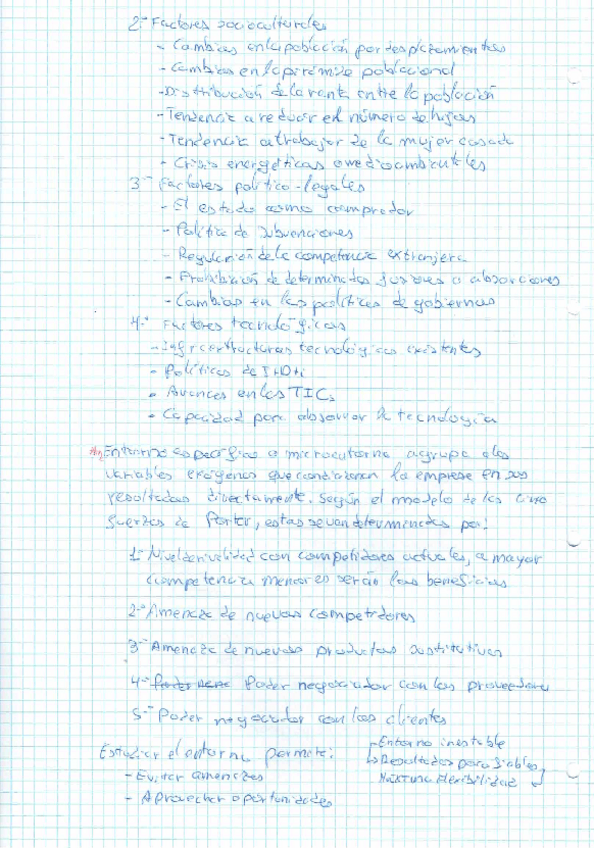 2.- Factores socioculturales
- Cambios en la población por desplazamientos
- Cambios en la pirámide poblacional
- Distribución de la renta entre la población
- Tendencia a reducir el número de hijos
- Tendencia a trabajar de la mujer casada
- Crisis energéticas o medioambientales
3.- Factores político-legales
- El estado como comprador
- Política de subvenciones
- Regulación de la competencia extranjera
- Prohibición de determinadas fusiones o absorciones
- Cambios en las políticas de gobiernos
4.- Factores tecnológicos
- Infraestructuras tecnológicas existentes
- Políticas de I+D+i
- Avances en las TICs
- Capacidad para absorver la tecnología
Entorno específico o microentorno agrupa a las
variables exógenas que condicionan la empresa en sus
resultados directamente. Según el modelo de las cinco
fuerzas de Porter, estas se van determinadas por:
1.- Nivel de rivalidad con competidores actuales, a mayor
competencia menores serán los beneficios
2.- Amenaza de nuevos competidores
3.- Amenaza de nuevos productos sustitutivos
4.- Poder negociador con los proveedores
5.- Poder negociador con los clientes
Estudiar el entorno permite:
- Evitar amenazas
- Aprovechar oportunidades
Entorno inestable
Resultados poco fiables
Máxima flexibilidad